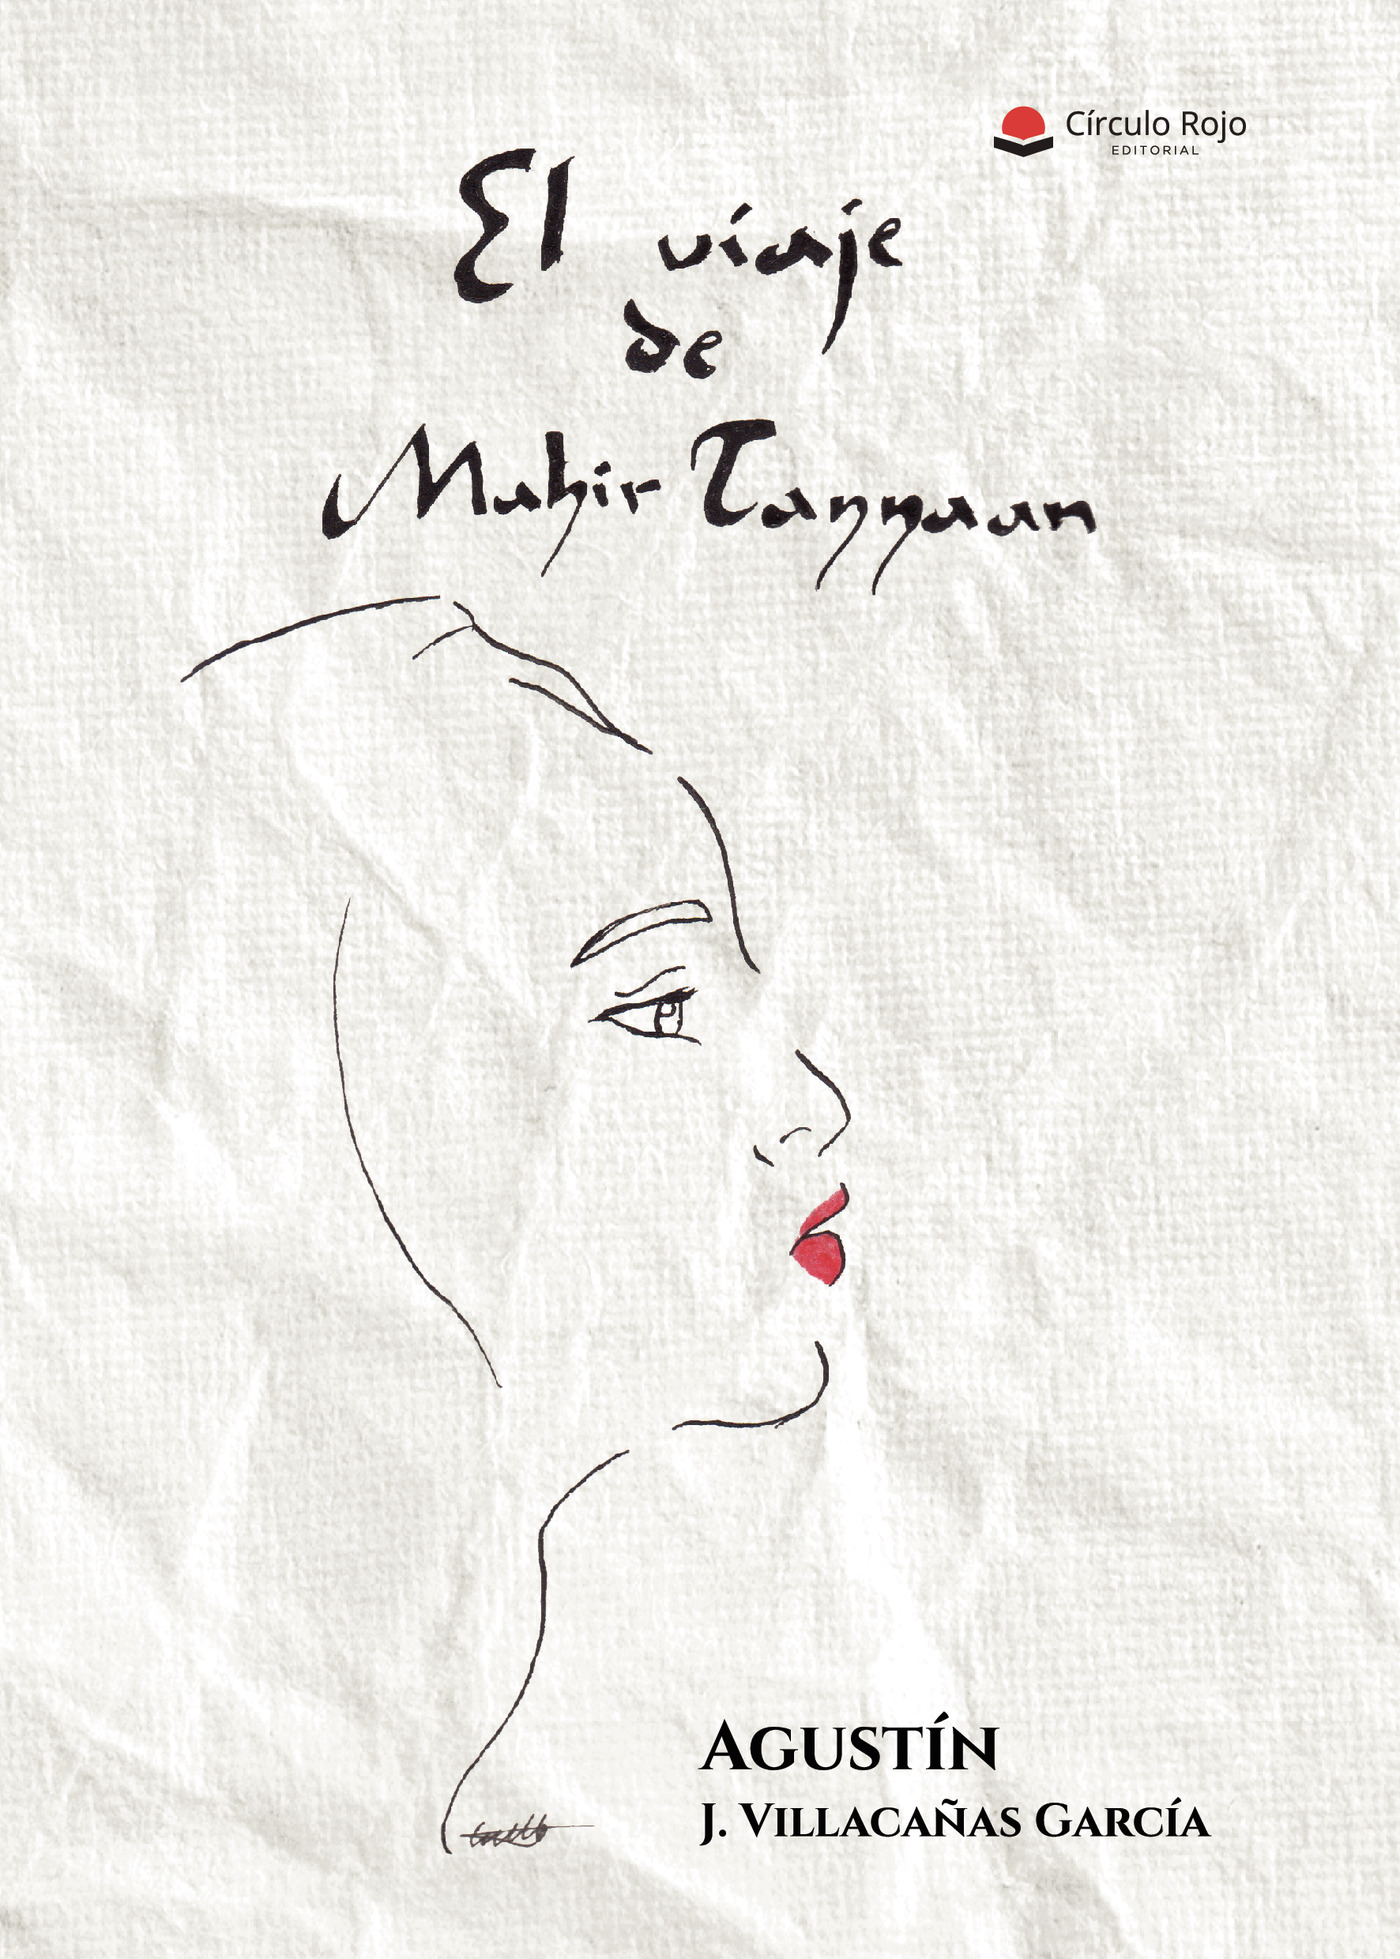 Círculo Rojo
EDITORIAL
El viaje
de
Mahir Tannaan
AGUSTÍN
J. VILLACAÑAS GARCÍA